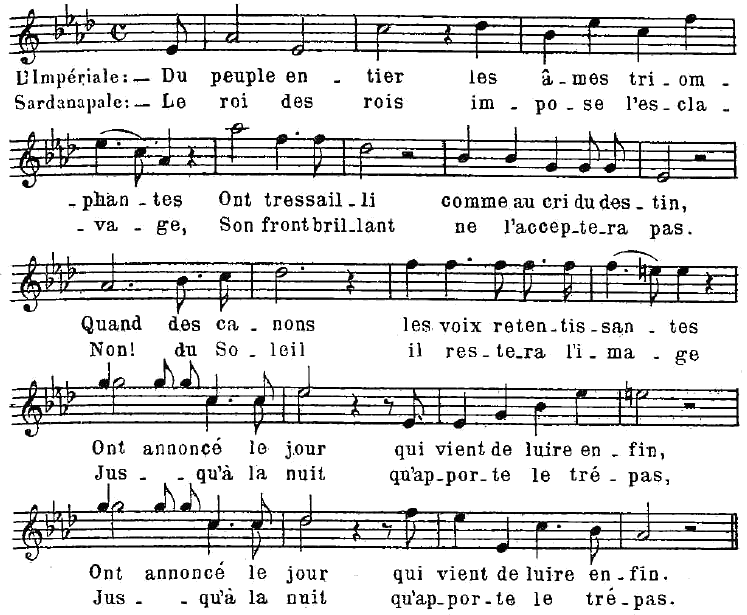 L'Impériale:— Du peuple en - tier les â - mes tri - om -
Sardanapale:— Le roi des rois im - po - se l'es - cla -
- phan - tes Ont tressail - li comme au cri du des - tin,
- va - ge, Son front bril - lant ne l'accep - te - ra pas.
Quand des ca - nons les voix reten - tis - san - tes
Non! du So - leil il res - te - ra l'i - ma - ge
Ont annoncé le jour qui vient de luire en - fin,
Jus - - qu'à la nuit qu'ap - por - te le tré - pas,
Ont annoncé le jour qui vient de luire en - fin.
Jus - - qu'à la nuit qu'ap - por - te le tré - pas.